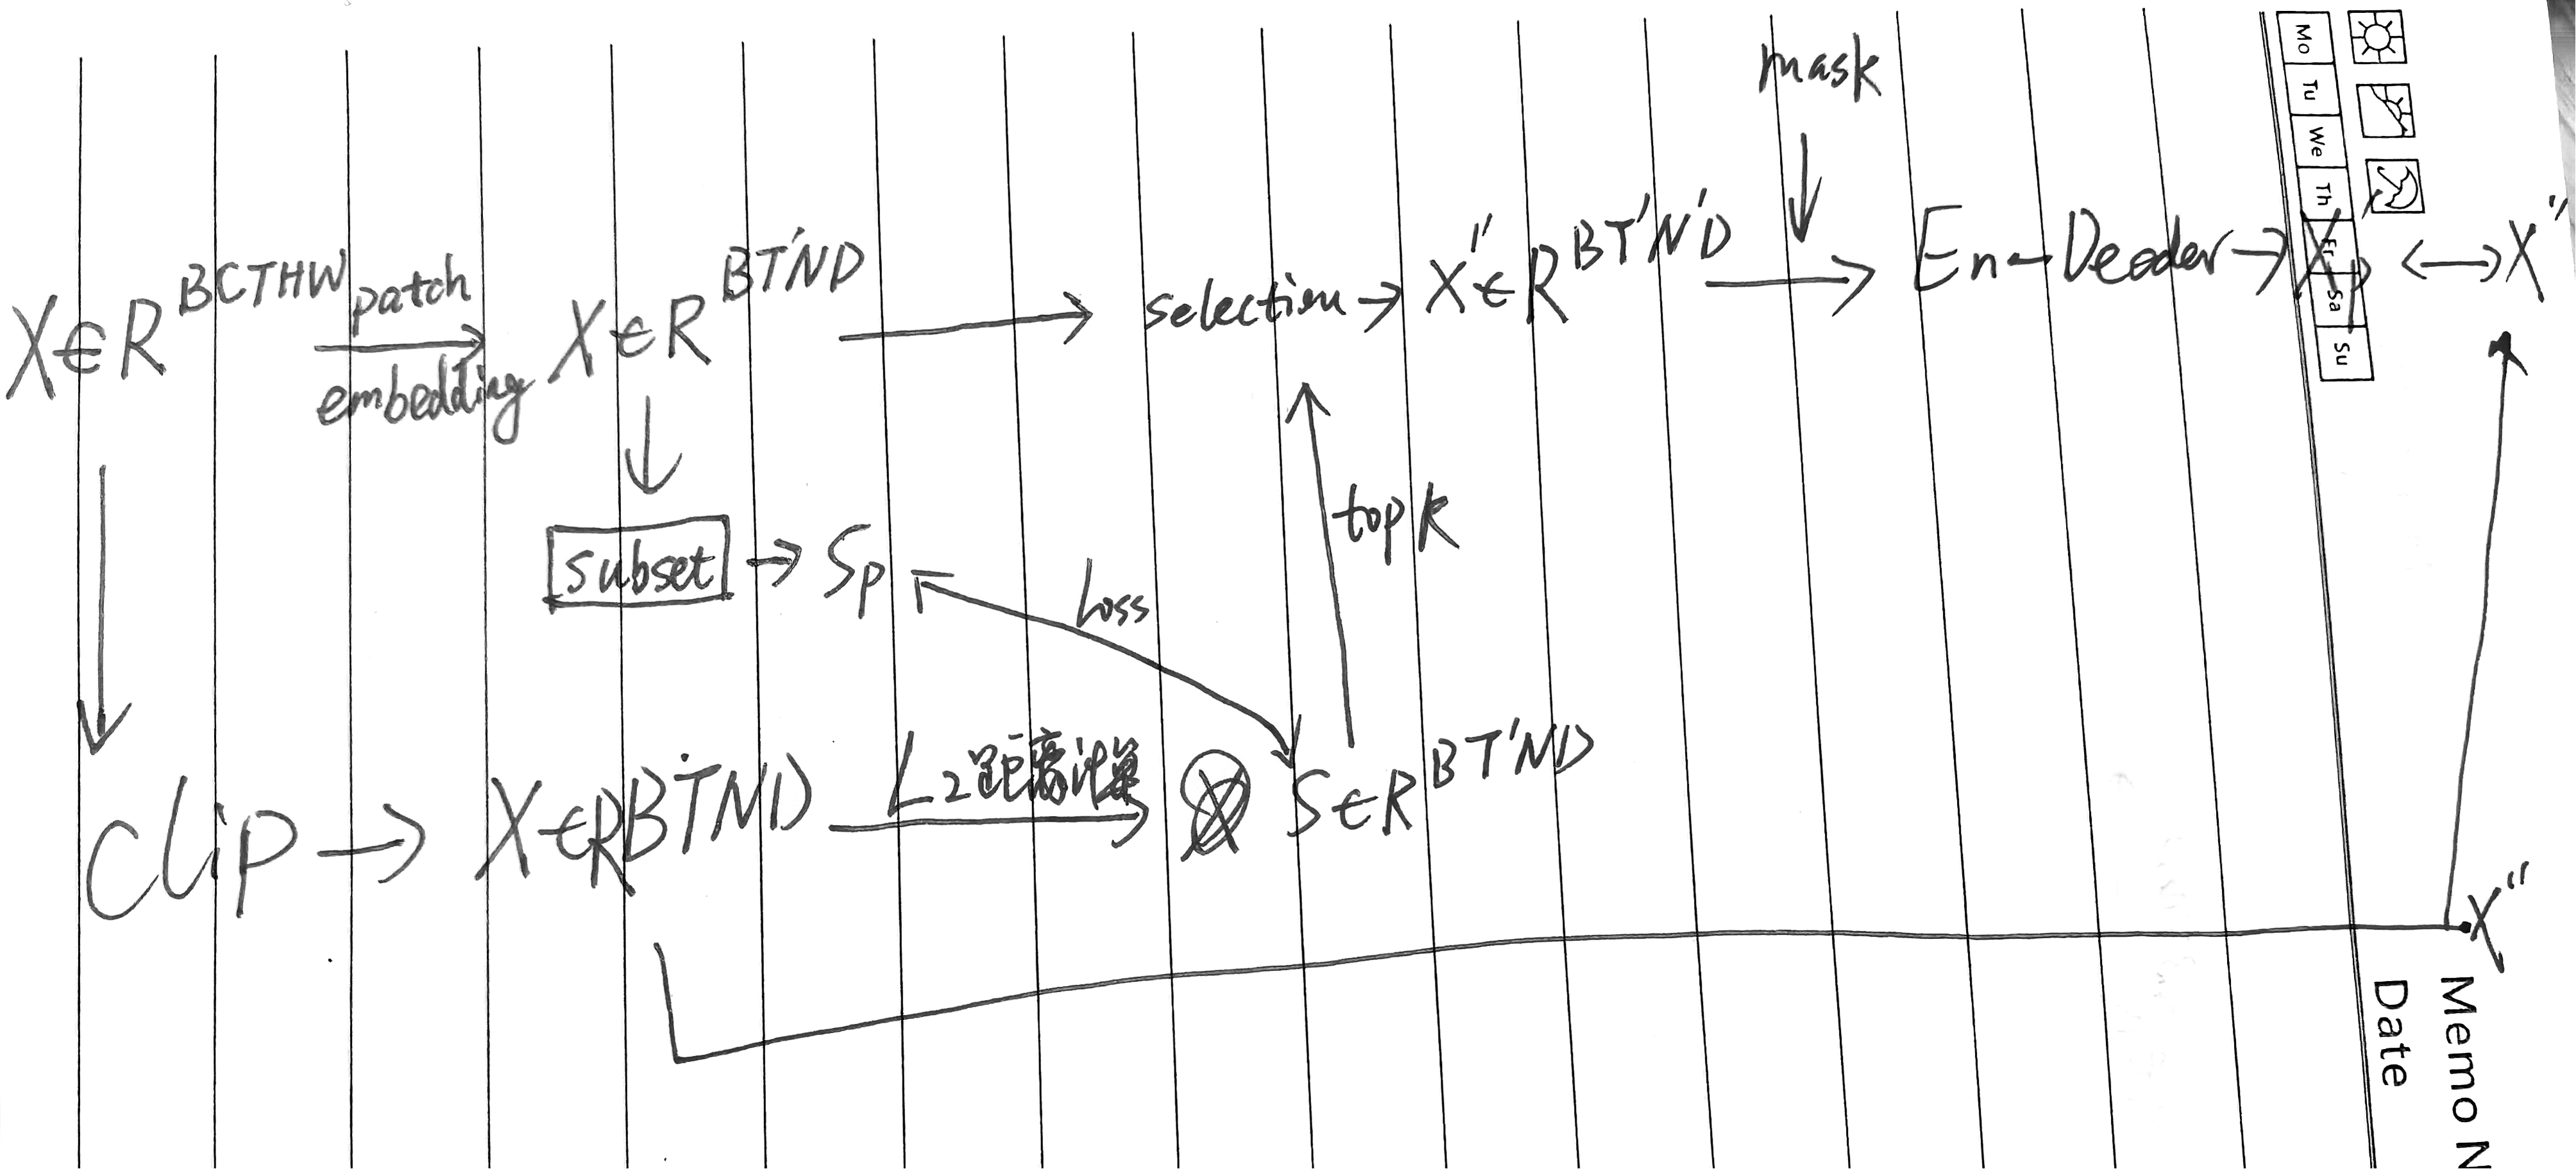 mask
X∈R^BCTHW patch embedding X∈R^BT'ND → selection → X''∈R^BT'N'D → En-Deoder → X' ↔ X''
subset → Sp
Loss
top K
CLiP → X∈R^BT'ND L2距离计算 S∈R^BT'ND
X''
Mo Tu We Th Fr Sa Su
Memo N
Date